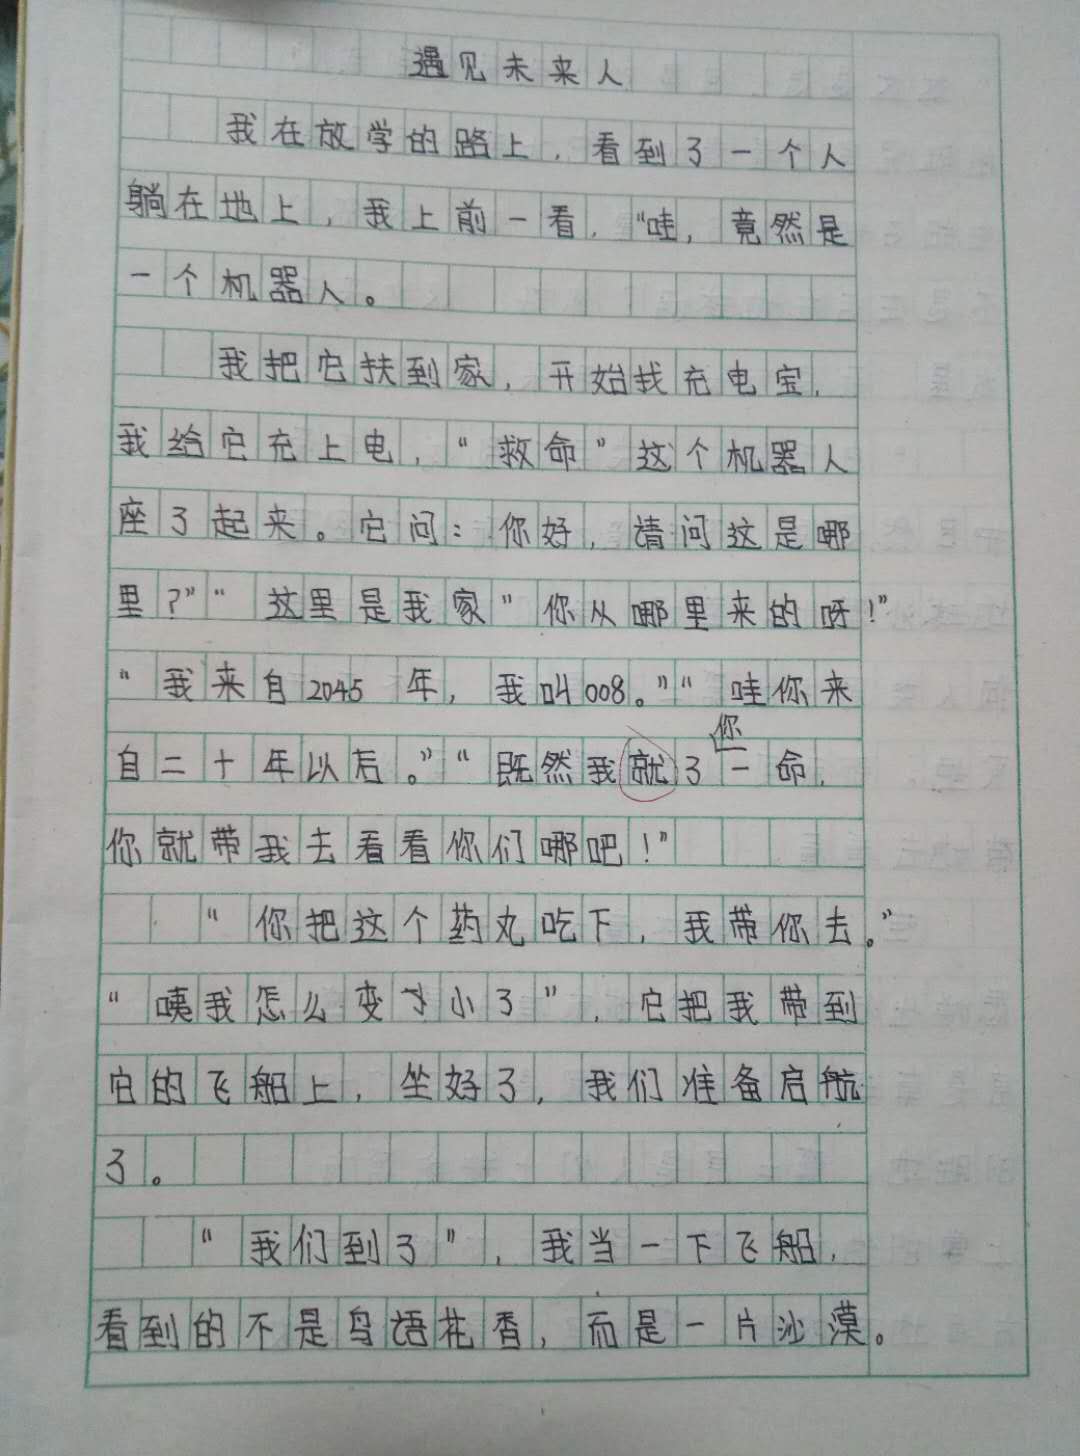 遇见未来人
我在放学的路上，看到了一个人
躺在地上，我上前一看，“哇，竟然是
一个机器人。
我把它扶到家，开始找充电宝，
我给它充上电，“救命”这个机器人
座了起来。它问：你好，请问这是哪
里？”“这里是我家”你从哪里来的呀！”
“我来自2045年，我叫008。”“哇你来
自二十年以后。”“既然我就了你一命，
你就带我去看看你们哪吧！”
“你把这个药丸吃下，我带你去。”
“咦我怎么变小了”，它把我带到
它的飞船上，坐好了，我们准备启航
了。
“我们到了”，我当一下飞船，
看到的不是鸟语花香，而是一片沙漠。